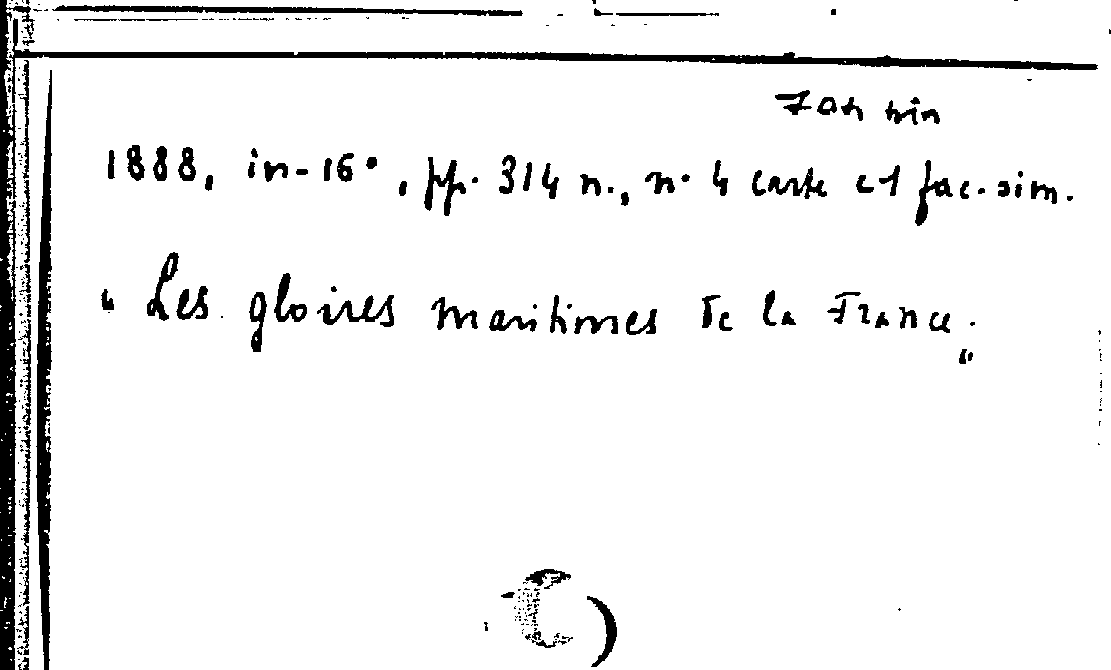 1888, in-16°, pp. 314 n., n. 4 carte et fac-sim.
" Les gloires maritimes de la France. "
C )